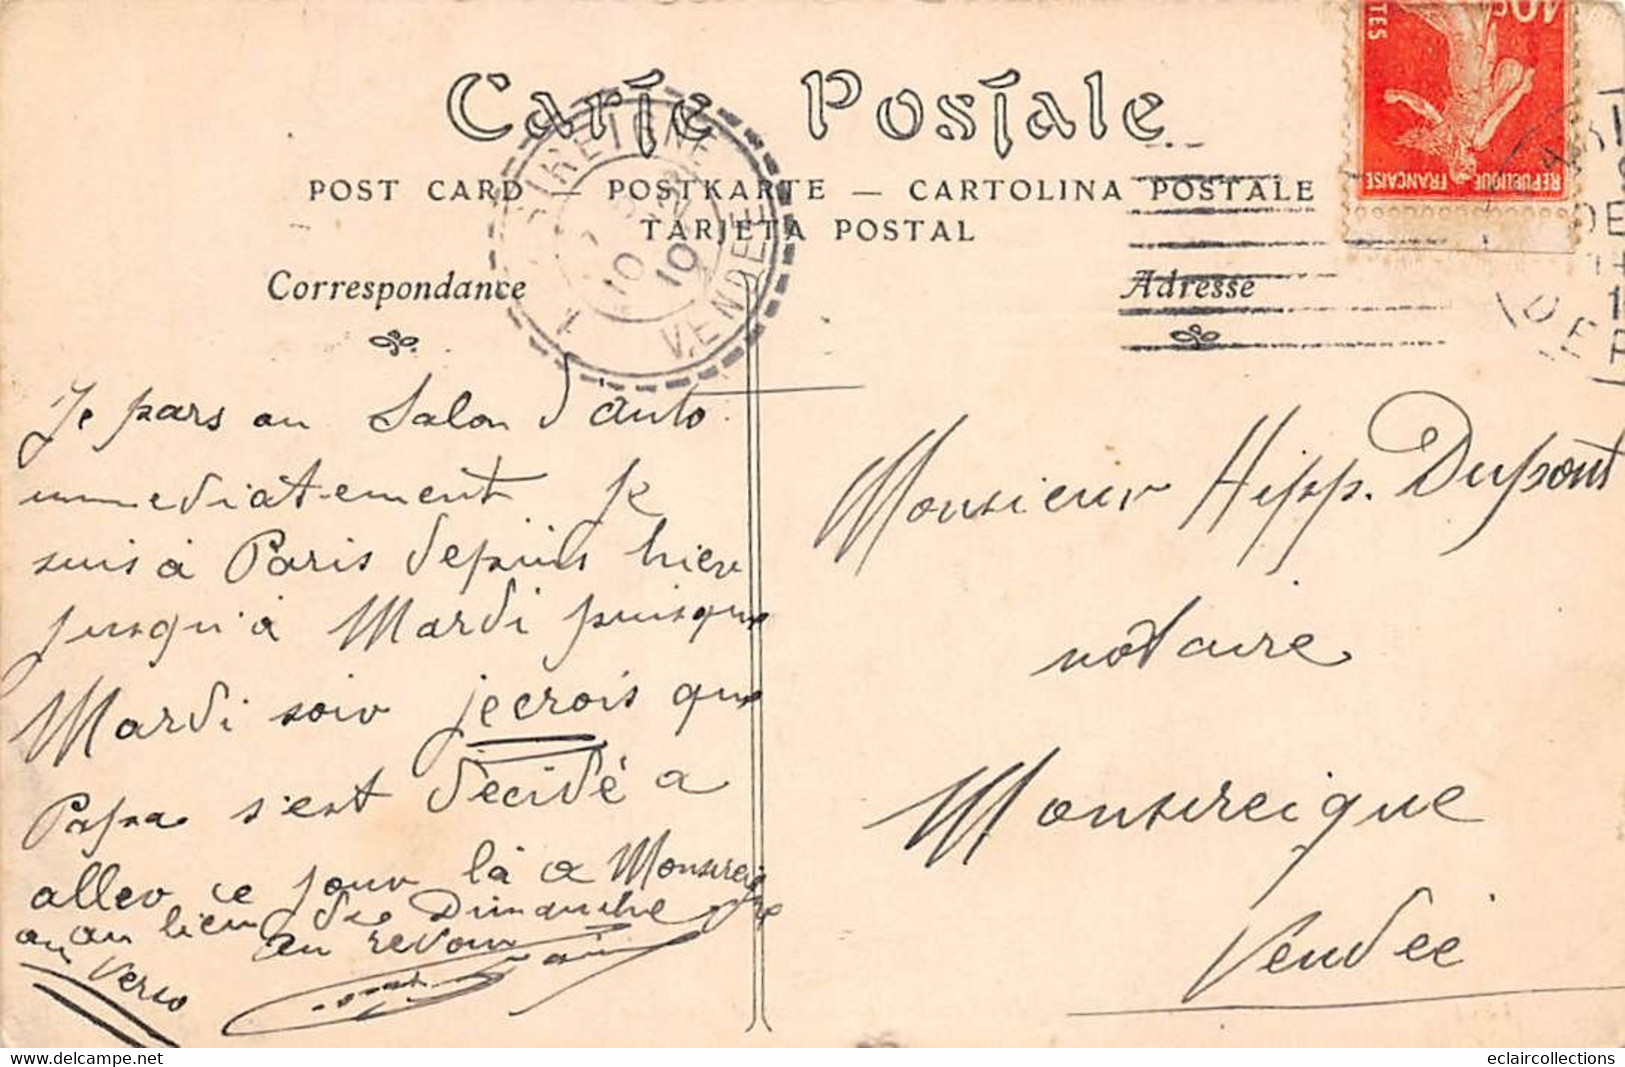 Carte Postale
POST CARD — POSTKARTE — CARTOLINA POSTALE
TARJETA POSTAL
Correspondance
Adresse
10c
REPUBLIQUE FRANÇAISE
VENDEE
10 10
Je pars au Salon d'auto
immediatement je
suis à Paris depuis hier
jusqu'à Mardi puisque
Mardi soir je crois que
Papa s'est decidé a
aller ce jour là a Monsireigne
au lieu de Dimanche
au revoir
au verso
Monsieur Hipp. Dupont
notaire
Monsireigne
Vendée
eclaircollections